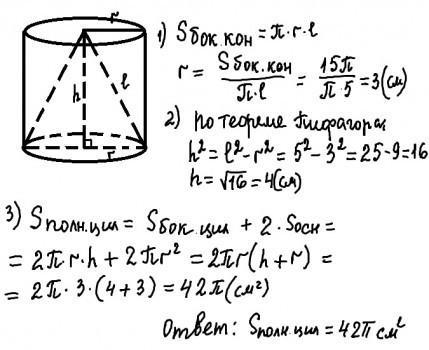 r
h
l
r
1) Sбок.кон = π·r·l
r = Sбок.кон / π·l = 15π / π·5 = 3(см)
2) по теореме Пифагора
h² = l² - r² = 5² - 3² = 25 - 9 = 16
h = √16 = 4(см)
3) Sполн.цил = Sбок.цил + 2·Sосн =
= 2πr·h + 2πr² = 2πr(h + r) =
= 2π·3·(4+3) = 42π(см²)
Ответ: Sполн.цил = 42π см²